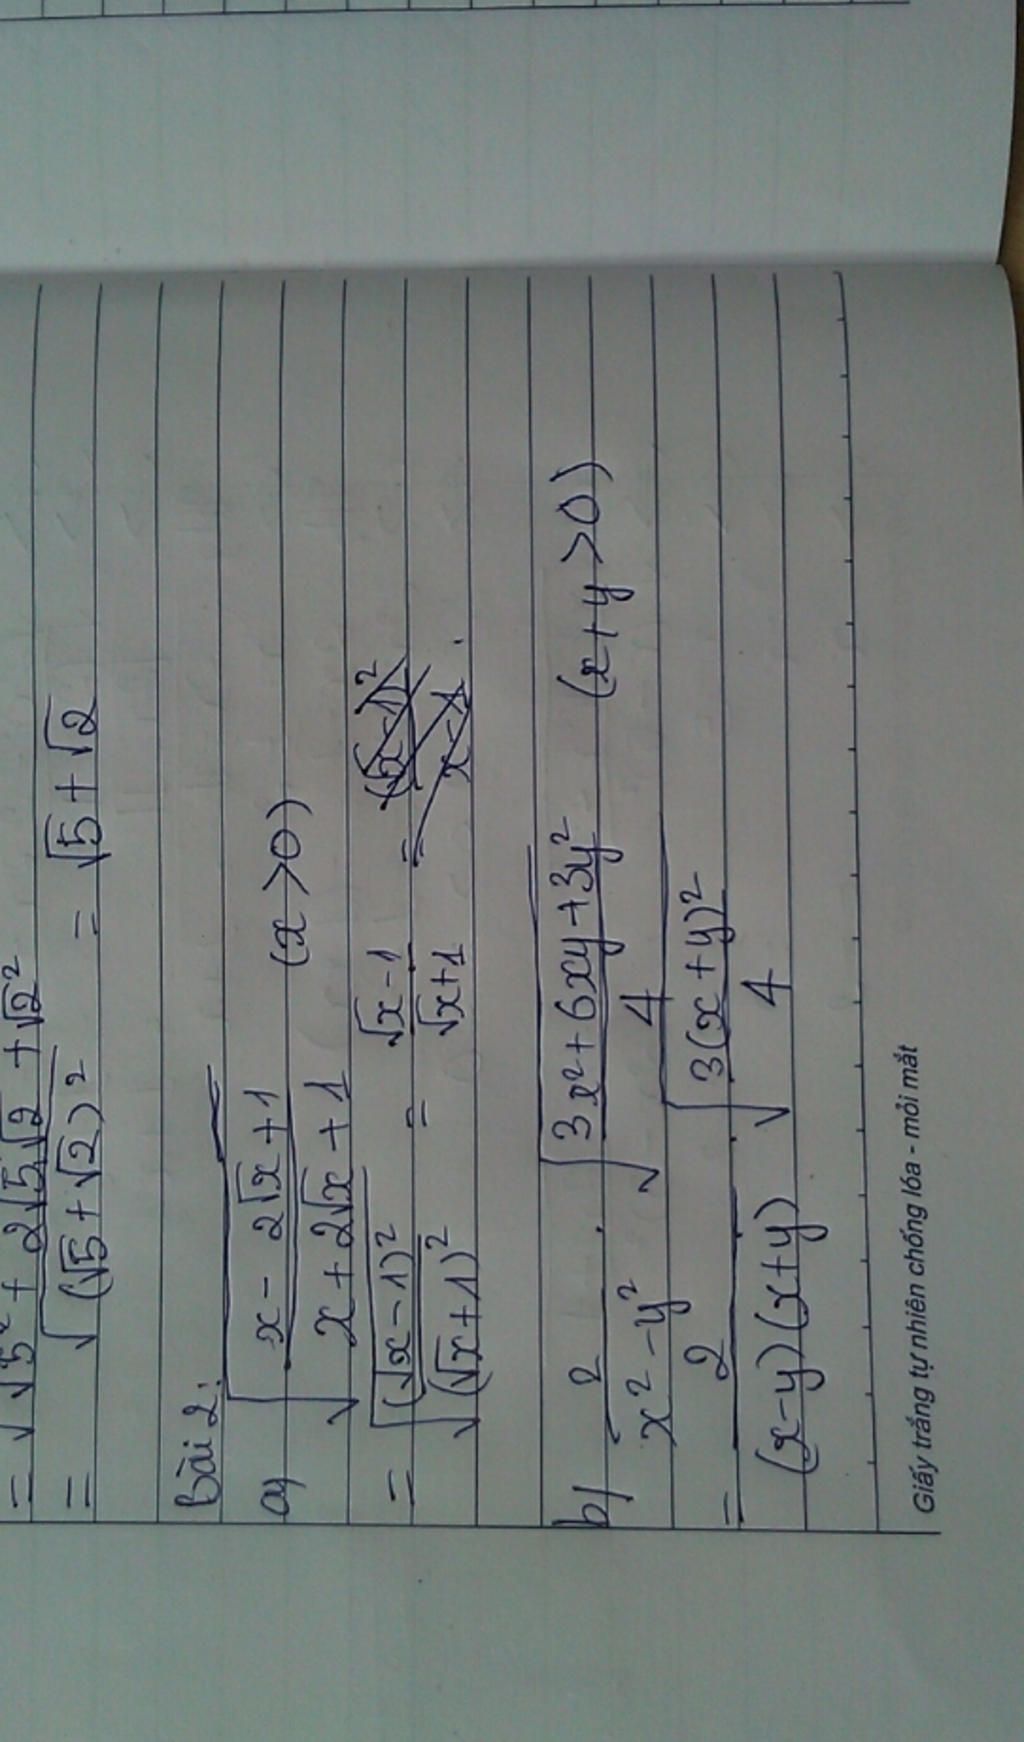 = √5² + 2√5√2 + √2²
= √(√5+√2)² = √5 + √2
Bài 2:
a) √((x - 2√x + 1)/(x + 2√x + 1)) (x > 0)
= √((√x - 1)²/(√x + 1)²) = (√x - 1)/(√x + 1) =
b) 2/(x² - y²) . √((3x² + 6xy + 3y²)/4) (x + y > 0)
= 2/((x-y)(x+y)) . √(3(x + y)²/4)
Giấy trắng tự nhiên chống lóa - mỏi mắt